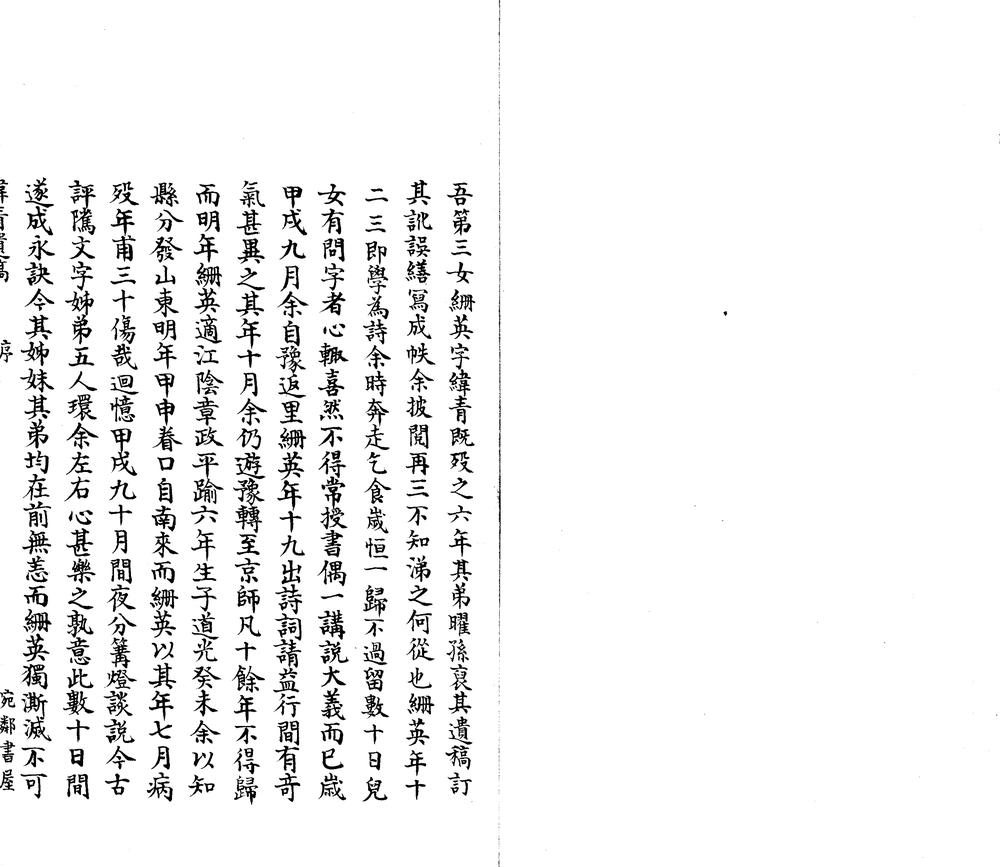 吾第三女緗英字緯青既歿之六年其弟曜孫裒其遺稿訂
其訛誤繕寫成帙余披閱再三不知涕之何從也緗英年十
二三即學為詩余時奔走乞食歲恒一歸不過留數十日兒
女有問字者心輒喜然不得常授書偶一講說大義而已歲
甲戌九月余自豫返里緗英年十九出詩詞請益行間有奇
氣甚異之其年十月余仍遊豫轉至京師凡十餘年不得歸
而明年緗英適江陰章政平踰六年生子道光癸未余以知
縣分發山東明年甲申眷口自南來而緗英以其年七月病
歿年甫三十傷哉迴憶甲戌九十月間夜分篝燈談說今古
評隲文字姊弟五人環余左右心甚樂之孰意此數十日間
遂成永訣今其姊妹其弟均在前無恙而緗英獨澌滅不可
緯青遺稿 序 宛鄰書屋